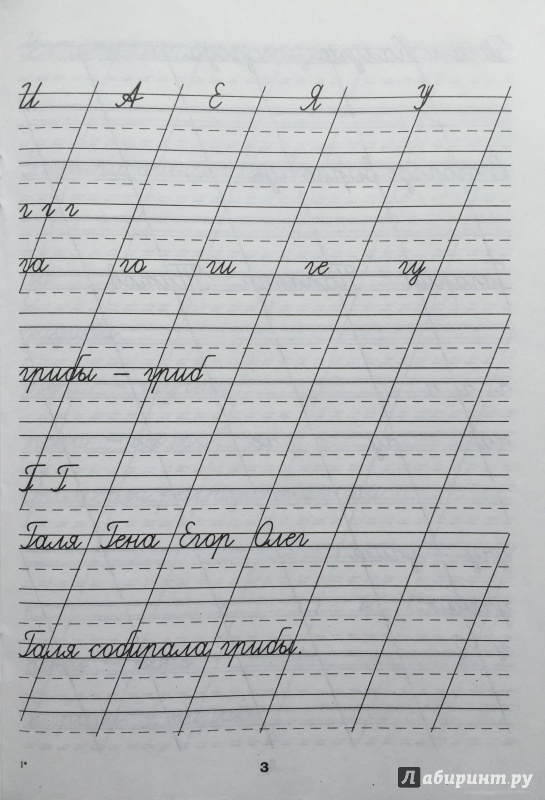 И А Е Я У
г г г
га го ги ге гу
грибы – гриб
Г Г
Галя Гена Егор Олег
Галя собирала грибы.
3
Лабиринт.ру